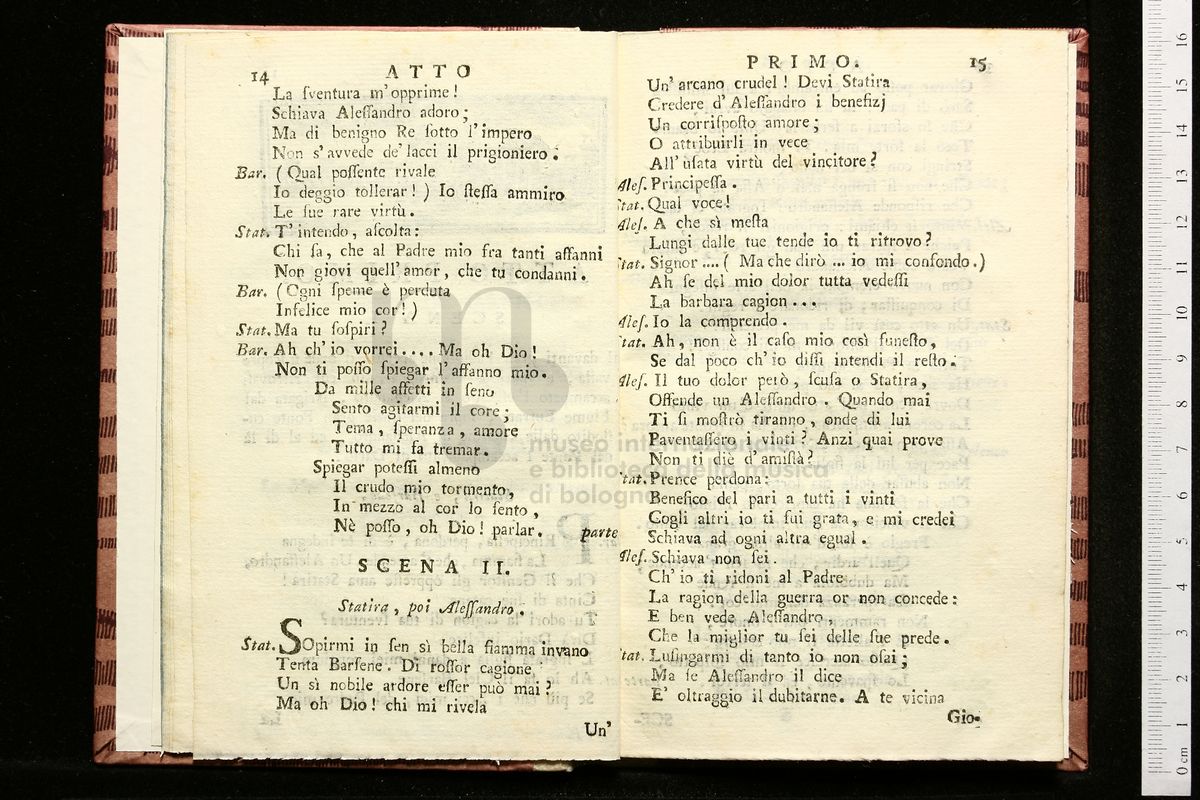 14 ATTO
La sventura m'opprime!
Schiava Alessandro adoro;
Ma di benigno Re sotto l'impero
Non s'avvede de' lacci il prigioniero.
Bar. (Qual possente rivale
Io deggio tollerar!) Io stessa ammiro
Le sue rare virtù.
Stat. T'intendo, ascolta:
Chi sa, che al Padre mio fra tanti affanni
Non giovi quell'amor, che tu condanni.
Bar. (Ogni speme è perduta
Infelice mio cor!)
Stat. Ma tu sospiri?
Bar. Ah ch'io vorrei.... Ma oh Dio!
Non ti posso spiegar l'affanno mio.
Da mille affetti in seno
Sento agitarmi il core;
Tema, speranza, amore
Tutto mi fa tremar.
Spiegar potessi almeno
Il crudo mio tormento,
In mezzo al cor lo sento,
Nè posso, oh Dio! parlar. parte
SCENA II.
Statira, poi Alessandro.
Stat. SOpirmi in sen sì bella fiamma invano
Tenta Barsene. Di rossor cagione
Un sì nobile ardore esser può mai;
Ma oh Dio! chi mi rivela
Un'
PRIMO. 15
Un'arcano crudel! Devi Statira
Credere d'Alessandro i benefizj
Un corrisposto amore;
O attribuirli in vece
All'ùsata virtù del vincitore?
Ales. Principessa.
Stat. Qual voce!
Ales. A che sì mesta
Lungi dalle tue tende io ti ritrovo?
Stat. Signor .... (Ma che dirò ... io mi confondo.)
Ah se del mio dolor tutta vedessi
La barbara cagion ...
Ales. Io la comprendo.
Stat. Ah, non è il caso mio così funesto,
Se dal poco ch'io dissi intendi il resto.
Ales. Il tuo dolor però, scusa o Statira,
Offende un Alessandro. Quando mai
Ti si mostrò tiranno, onde di lui
Paventassero i vinti? Anzi quai prove
Non ti diè d'amistà?
Stat. Prence perdona:
Benefico del pari a tutti i vinti
Cogli altri io ti fui grata, e mi credei
Schiava ad ogni altra egual.
Ales. Schiava non sei.
Ch'io ti ridoni al Padre
La ragion della guerra or non concede:
E ben vede Alessandro,
Che la miglior tu sei delle sue prede.
Stat. Lusingarmi di tanto io non osai;
Ma se Alessandro il dice
E' oltraggio il dubitarne. A te vicina
Gio-
museo internazionale
e biblioteca della musica
di bologna
0 cm 1 2 3 4 5 6 7 8 9 10 11 12 13 14 15 16